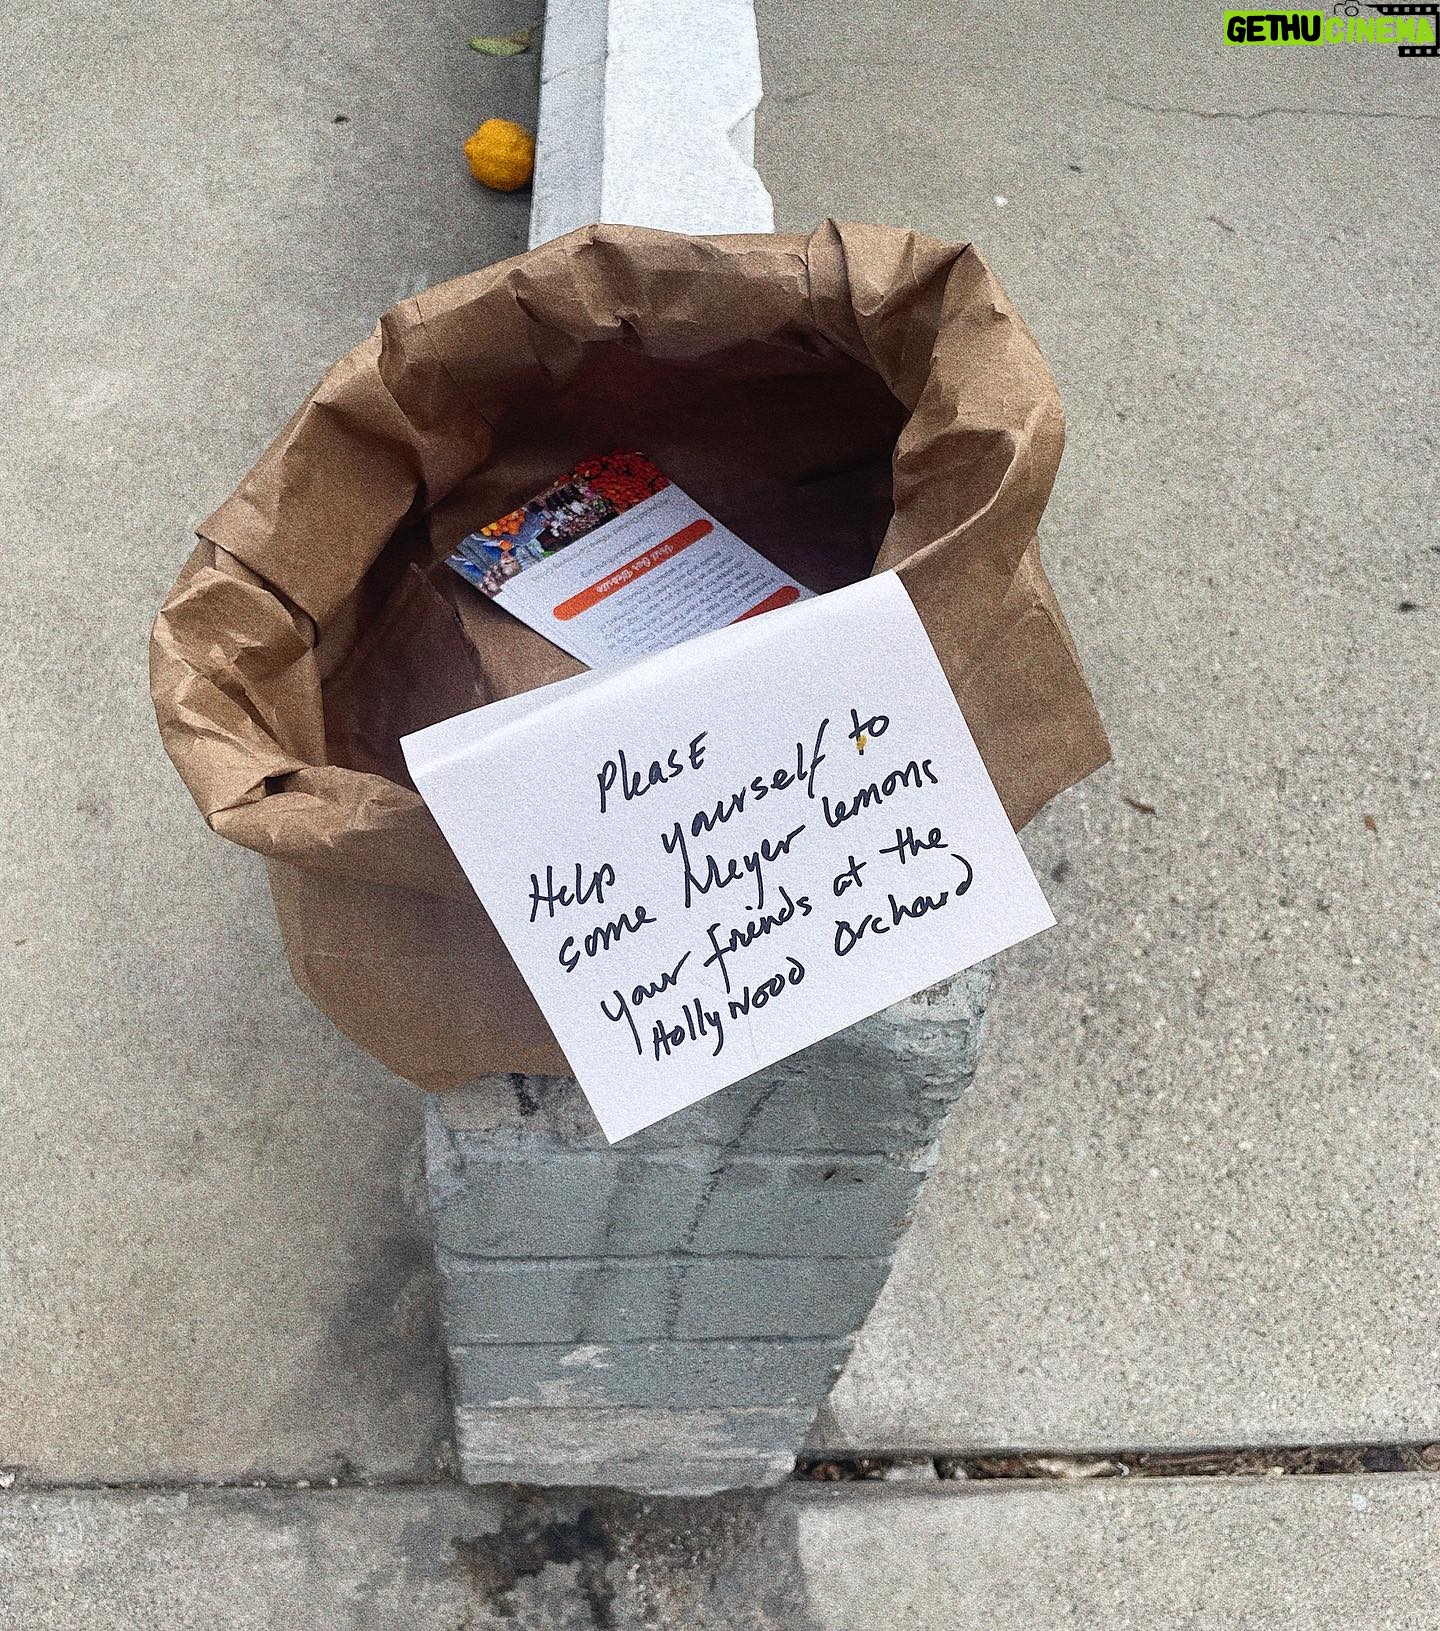 GETHUCINEMA
Visit Our Website
Please
Help yourself to
some Meyer lemons
your friends at the
Hollywood Orchard